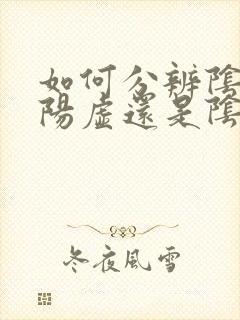 如何分辨陰
陽虛還是陰
冬夜風雪